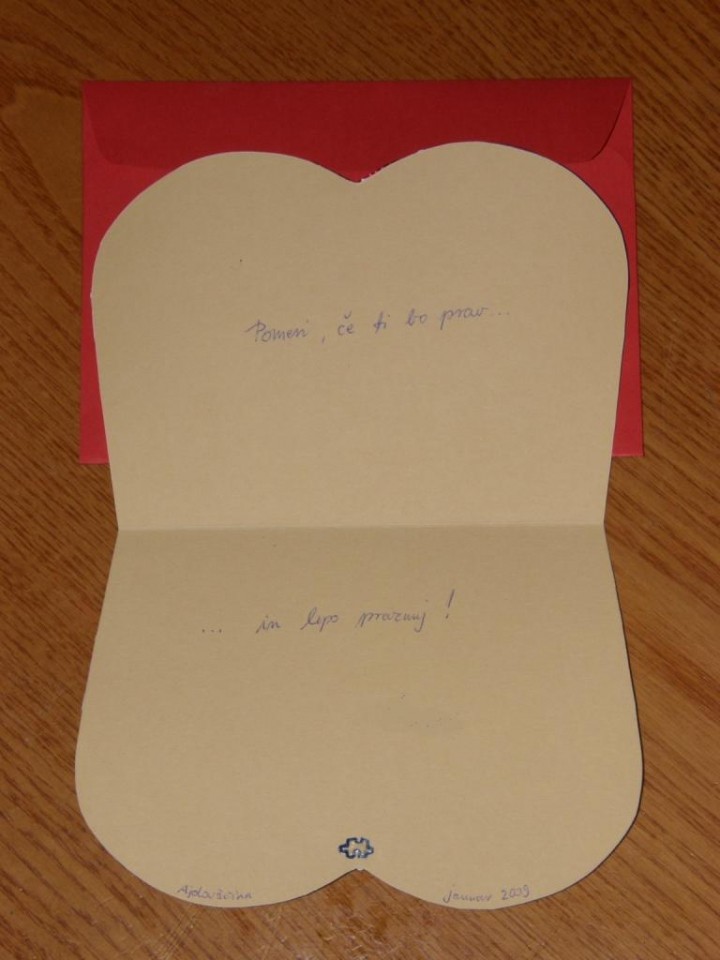 Pomeri, če ti bo prav...
... in lepo praznuj!
Ajdovščina
januar 2009